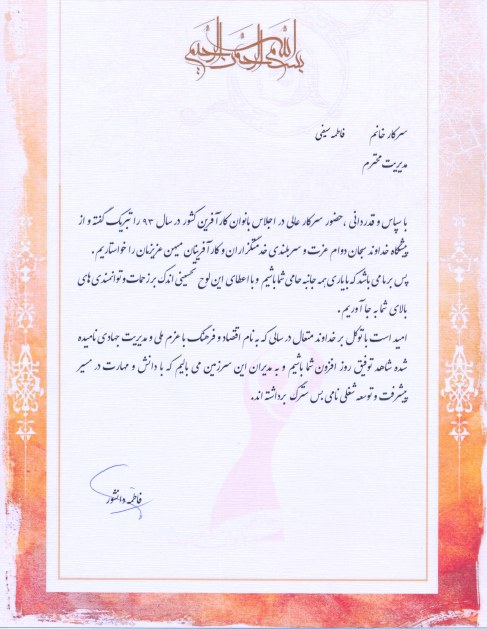 بسم الله الرحمن الرحیم
سرکار خانم فاطمه سیفی
مدیریت محترم
با سپاس و قدردانی ، حضور سرکار عالی در اجلاس بانوان کارآفرین کشور در سال ۹۳ را تبریک گفته و از
پیشگاه خداوند سبحان دوام عزت و سربلندی خدمتگزاران و کارآفرینان میهن عزیزمان را خواستاریم .
پس بر ما می باشد که با یاری همه جانبه حامی شما باشیم و با اعطای این لوح تحسینی اندک بر زحمات و توانمندی های
بالای شما به جا آوریم .
امید است با توکل بر خداوند متعال در سالی که به نام اقتصاد و فرهنگ با عزم ملی و مدیریت جهادی نامیده
شده شاهد توفیق روز افزون شما باشیم و به مدیران این سرزمین می بالیم که با دانش و مهارت در مسیر
پیشرفت و توسعه شغلی نامی بس سترگ برداشته اند.
فاطمه دانشور